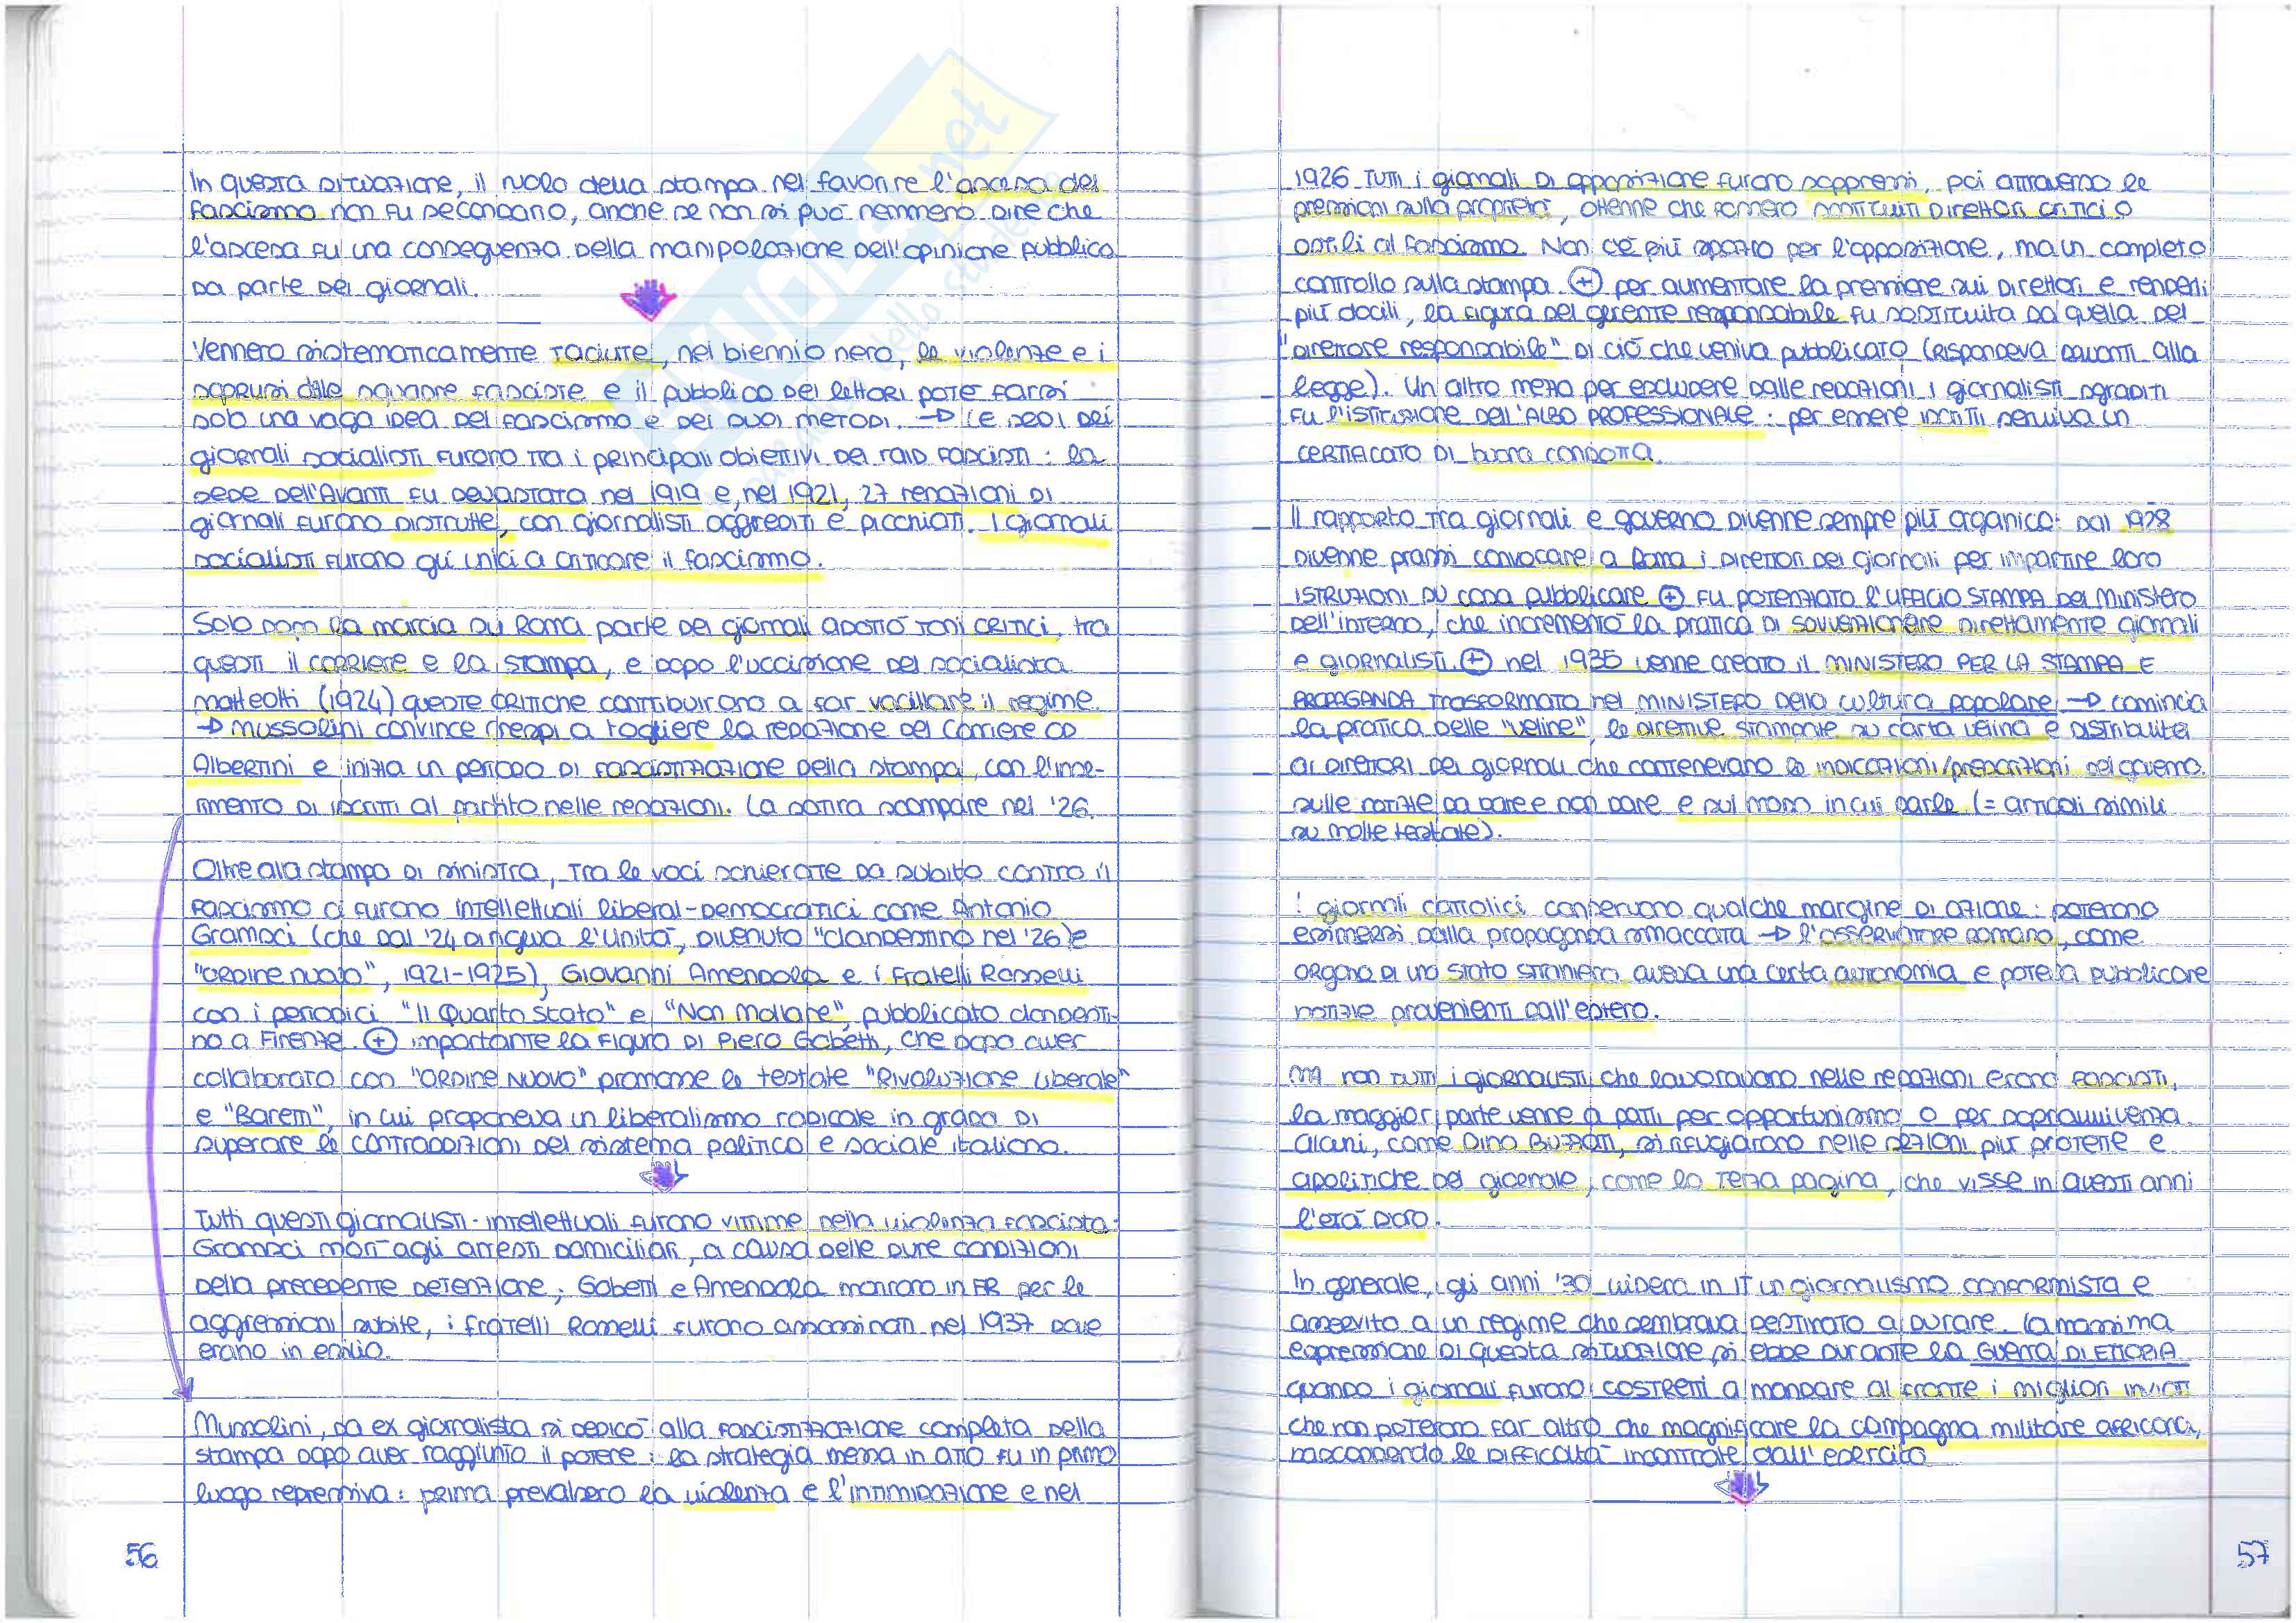 In questa situazione, il ruolo della stampa nel favorire l'ascesa del
fascismo non fu secondario, anche se non si può nemmeno dire che
l'ascesa fu una conseguenza della manipolazione dell'opinione pubblica
da parte dei giornali.
Vennero sistematicamente taciute, nel biennio nero, le violenze e i
soprusi delle squadre fasciste e il pubblico dei lettori poté farsi
solo una vaga idea del fascismo e dei suoi metodi. → Le sedi dei
giornali socialisti furono tra i principali obiettivi dei raid fascisti: la
sede dell'Avanti fu devastata nel 1919 e, nel 1921, 27 redazioni di
giornali furono distrutte, con giornalisti aggrediti e picchiati. I giornali
socialisti furono gli unici a criticare il fascismo.
Solo dopo la marcia su Roma parte dei giornali adottò toni critici, tra
questi il Corriere e la Stampa, e dopo l'uccisione del socialista
Matteotti (1924) queste critiche contribuirono a far vacillare il regime.
→ Mussolini convince Crespi a togliere la redazione del Corriere ad
Albertini e inizia un periodo di fascistizzazione della stampa, con l'inse-
rimento di iscritti al partito nelle redazioni. La satira scompare nel '26.
Oltre ala stampa di sinistra, tra le voci schierate da subito contro il
fascismo ci furono intellettuali liberal-democratici come Antonio
Gramsci (che dal '24 dirigeva l'Unità, divenuto "clandestino nel '26) e
"Ordine nuovo", 1921-1925), Giovanni Amendola e i fratelli Rosselli
con i periodici "Il Quarto Stato" e "Non Mollare", pubblicato clandesti-
no a Firenze. ⊕ importante la figura di Piero Gobetti, che dopo aver
collaborato con "Ordine Nuovo" promosse le testate "Rivoluzione Liberale"
e "Baretti", in cui proponeva un liberalismo radicale in grado di
superare le contraddizioni del sistema politico e sociale italiano.
Tutti questi giornalisti-intellettuali furono vittime della violenza fascista:
Gramsci morì agli arresti domiciliari, a causa delle dure condizioni
della precedente detenzione; Gobetti e Amendola morirono in FR per le
aggressioni subite, i fratelli Rosselli furono assassinati nel 1937 dove
erano in esilio.
Mussolini, da ex giornalista si dedicò alla fascistizzazione completa della
stampa dopo aver raggiunto il potere: la strategia messa in atto fu in primo
luogo repressiva: prima prevalsero la violenza e l'intimidazione e nel
56
1926 tutti i giornali di opposizione furono soppressi, poi attraverso le
pressioni sulla proprietà, ottenne che fossero sostituiti direttori critici o
ostili al fascismo. Non c'è più spazio per l'opposizione, ma un completo
controllo sulla stampa. ⊕ per aumentare la pressione sui direttori e renderli
più docili, la figura del gerente responsabile fu sostituita da quella del
"direttore responsabile" di ciò che veniva pubblicato (rispondeva davanti alla
legge). Un altro mezzo per escludere dalle redazioni i giornalisti sgraditi
fu l'istituzione dell'ALBO PROFESSIONALE: per essere iscritti serviva un
certificato di buona condotta.
Il rapporto tra giornali e governo divenne sempre più organico: dal 1928
divenne prassi convocare a Roma i direttori dei giornali per impartire loro
istruzioni su cosa pubblicare ⊕ fu potenziato l'UFFICIO STAMPA del Ministero
dell'interno, che incrementò la pratica di sovvenzionare direttamente giornali
e giornalisti. ⊕ nel 1935 venne creato il MINISTERO PER LA STAMPA E
PROPAGANDA trasformato nel MINISTERO della cultura popolare → comincia
la pratica delle "veline", le direttive stampate su carta velina e distribuite
ai direttori dei giornali che contenevano le indicazioni/prescrizioni del governo
sulle notizie da dare e non dare e sul modo in cui darle (= articoli simili
su molte testate).
I giornali cattolici conservano qualche margine di azione: poterono
esimersi dalla propaganda smaccata → l'Osservatore romano, come
organo di uno stato straniero aveva una certa autonomia e poteva pubblicare
notizie provenienti dall'estero.
MA non tutti i giornalisti che lavoravano nelle redazioni erano fascisti,
la maggior parte venne a patti per opportunismo o per sopravvivenza.
Alcuni, come Dino Buzzati, si rifugiarono nelle sezioni più protette e
apolitiche del giornale, come la terza pagina, che visse in questi anni
l'età d'oro.
In generale, gli anni '30 videro in IT un giornalismo conformista e
asservito a un regime che sembrava destinato a durare. La massima
espressione di questa situazione si ebbe durante la GUERRA DI ETIOPIA
quando i giornali furono costretti a mandare al fronte i migliori inviati
che non poterono far altro che magnificare la campagna militare africana,
nascondendo le difficoltà incontrate dall'esercito
57